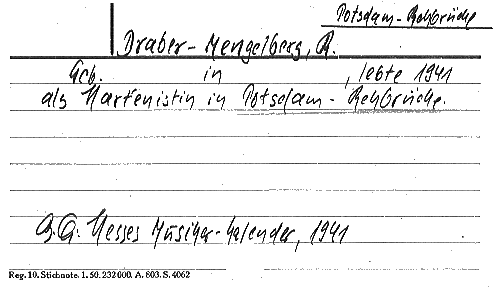 Potsdam-Rehbrücke
Draber-Mengelberg, R.
Geb. in , lebte 1941
als Harfenistin in Potsdam-Rehbrücke.
Hesses Musiker-Kalender, 1941
Reg. 10. Stichnote. 1. 50. 232000. A. 803. S. 4062